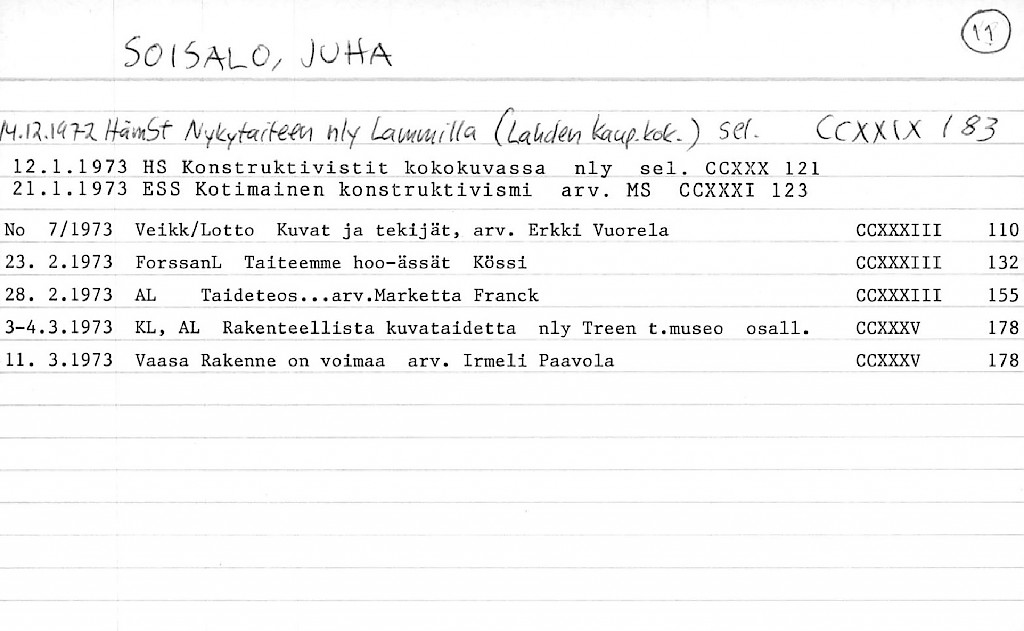 11
SOISALO, JUHA
14.12.1972 HämSt Nykytaiteen nly Lammilla (Lahden kaup.kok.) sel. CCXXIX 183
12.1.1973 HS Konstruktivistit kokokuvassa nly sel. CCXXX 121
21.1.1973 ESS Kotimainen konstruktivismi arv. MS CCXXXI 123
No 7/1973 Veikk/Lotto Kuvat ja tekijät, arv. Erkki Vuorela CCXXXIII 110
23. 2.1973 ForssanL Taiteemme hoo-ässät Kössi CCXXXIII 132
28. 2.1973 AL Taideteos...arv.Marketta Franck CCXXXIII 155
3-4.3.1973 KL, AL Rakenteellista kuvataidetta nly Treen t.museo osall. CCXXXV 178
11. 3.1973 Vaasa Rakenne on voimaa arv. Irmeli Paavola CCXXXV 178